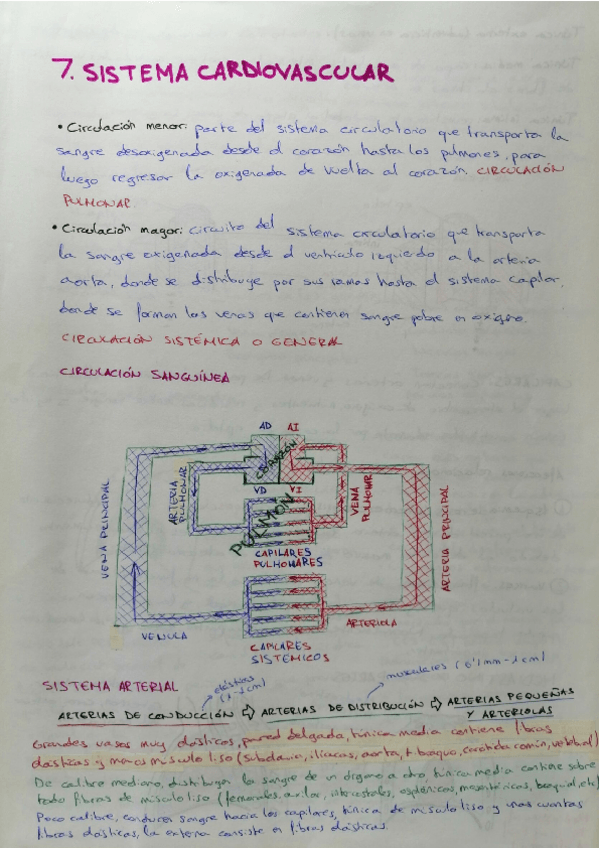 7. SISTEMA CARDIOVASCULAR
• Circulación menor: parte del sistema circulatorio que transporta la
sangre desoxigenada desde el corazón hasta los pulmones, para
luego regresar la oxigenada de vuelta al corazón. CIRCULACIÓN
PULMONAR.
• Circulación mayor: circuito del sistema circulatorio que transporta
la sangre oxigenada desde el ventrículo izquierdo a la arteria
aorta, donde se distribuye por sus ramas hasta el sistema capilar,
donde se forman las venas que contienen sangre pobre en oxígeno.
CIRCULACIÓN SISTÉMICA O GENERAL
CIRCULACIÓN SANGUÍNEA
AD AI
CORAZÓN
VD VI
ARTERIA PULMONAR
VENA PULMONAR
PULMÓN
CAPILARES
PULMONARES
VENA PRINCIPAL
ARTERIA PRINCIPAL
VENULA
ARTERIOLA
CAPILARES
SISTEMICOS
SISTEMA ARTERIAL
elásticas
musculares (0'1mm-1cm)
ARTERIAS DE CONDUCCIÓN ⇨ ARTERIAS DE DISTRIBUCIÓN ⇨ ARTERIAS PEQUEÑAS
Y ARTERIOLAS
Grandes vasos muy elásticos, pared delgada, túnica media contiene fibras
elásticas y menos músculo liso (subclavia, ilíacas, aorta, t braquo, carótida común, vertebral)
De calibre mediano, distribuyen la sangre de un órgano a otro, túnica media contiene sobre
todo fibras de músculo liso (femorales, axilar, intercostales, esplénicas, mesentéricas, braquial, etc)
Poco calibre, conducen sangre hacia los capilares, túnica de músculo liso y unas cuantas
fibras elásticas, la externa consiste en fibras elásticas.